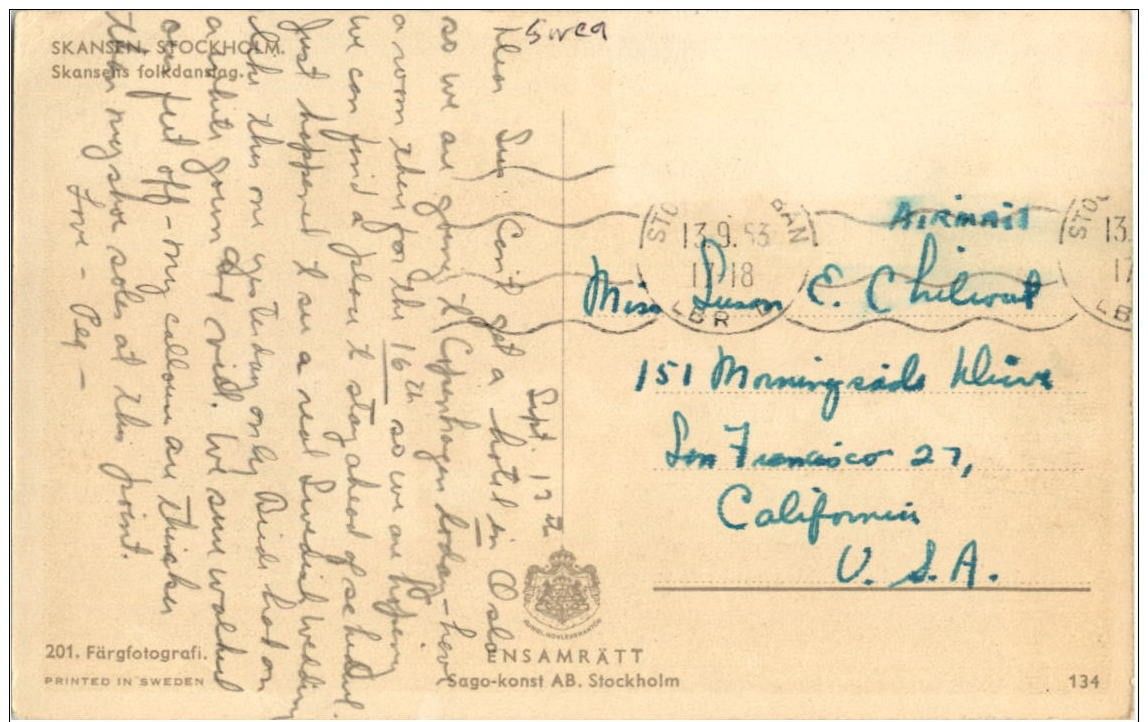 SKANSEN, STOCKHOLM.
Skansens folkdanslag.
Swed
Sept. 13th
Dear Sue Can't get a hotel in Oslo
so we are going to Copenhagen today - have
a room there for the 16th so we are hoping
we can find a place to stay ahead of schedule.
Just happened to see a real Swedish wedding
like this one yesterday only Bride had on
a white gown and veil. We sure walked
our feet off - my callouses are thicker
than my shoe soles at this point.
Love - Peg -
AIRMAIL
STO
13.9.53
17-18
BAN
LBR
STO
13.
17
LB
Miss Susan E. Chilcoat
151 Morningside Drive
San Francisco 27,
California
U. S. A.
201. Färgfotografi.
PRINTED IN SWEDEN
ENSAMRÄTT
Sago-konst AB. Stockholm
134